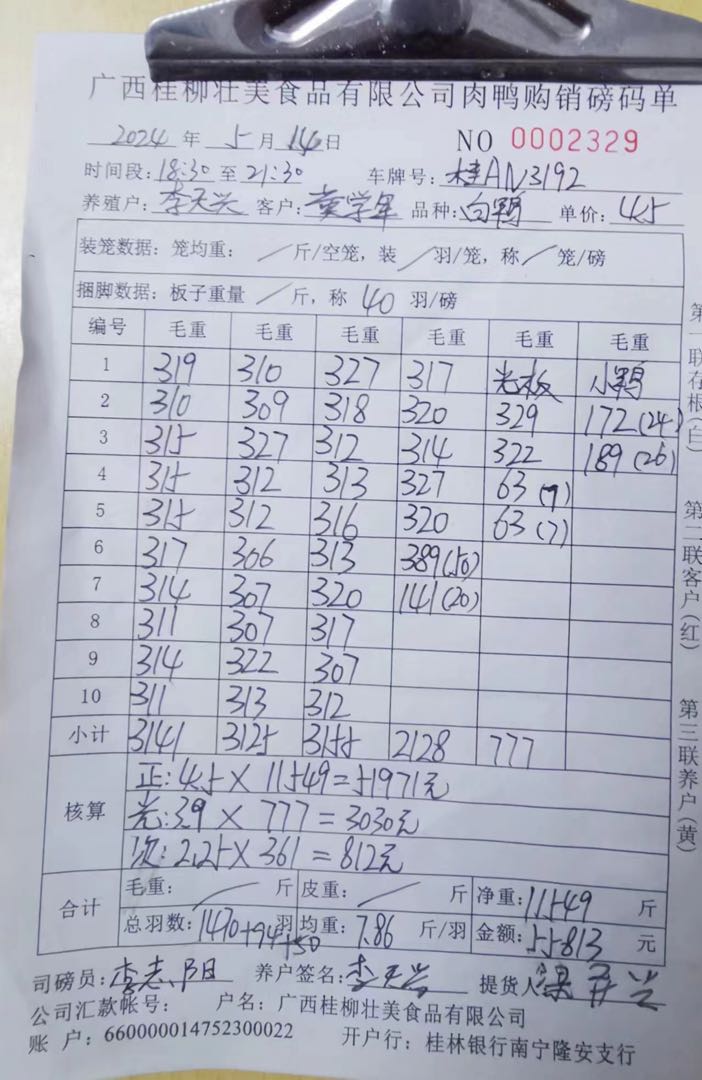 广西桂柳壮美食品有限公司肉鸭购销磅码单
2024 年 5 月 14 日 NO 0002329
时间段:18:30 至 21:30 车牌号:桂AN3192
养殖户:李天兴 客户:黄学年 品种:白鸭 单价:4.5
装笼数据:笼均重: / 斤/空笼,装 / 羽/笼,称 / 笼/磅
捆脚数据:板子重量 / 斤,称 40 羽/磅
编号 毛重 毛重 毛重 毛重 毛重 毛重
1 319 310 327 317 光板 小鸭
2 310 309 318 320 329 172(24)
3 315 327 312 314 322 189(26)
4 315 312 313 327 63(7)
5 315 312 316 320 63(7)
6 317 306 313 389(50)
7 314 307 320 141(20)
8 311 307 317
9 314 322 307
10 311 313 312
小计 3141 3125 3155 2128 777
核算
正:4.5×11549=51971元
光:3.9×777=3030元
次:2.25×361=812元
合计
毛重: / 斤 皮重: / 斤 净重:11549 斤
总羽数:1470+94+50 羽 均重:7.86 斤/羽 金额:55813 元
司磅员:李志阳 养户签名:李天兴 提货人
公司汇款帐号: 户名:广西桂柳壮美食品有限公司
账 户:660000014752300022 开户行:桂林银行南宁隆安支行
第一联存根(白)
第二联客户(红)
第三联养户(黄)